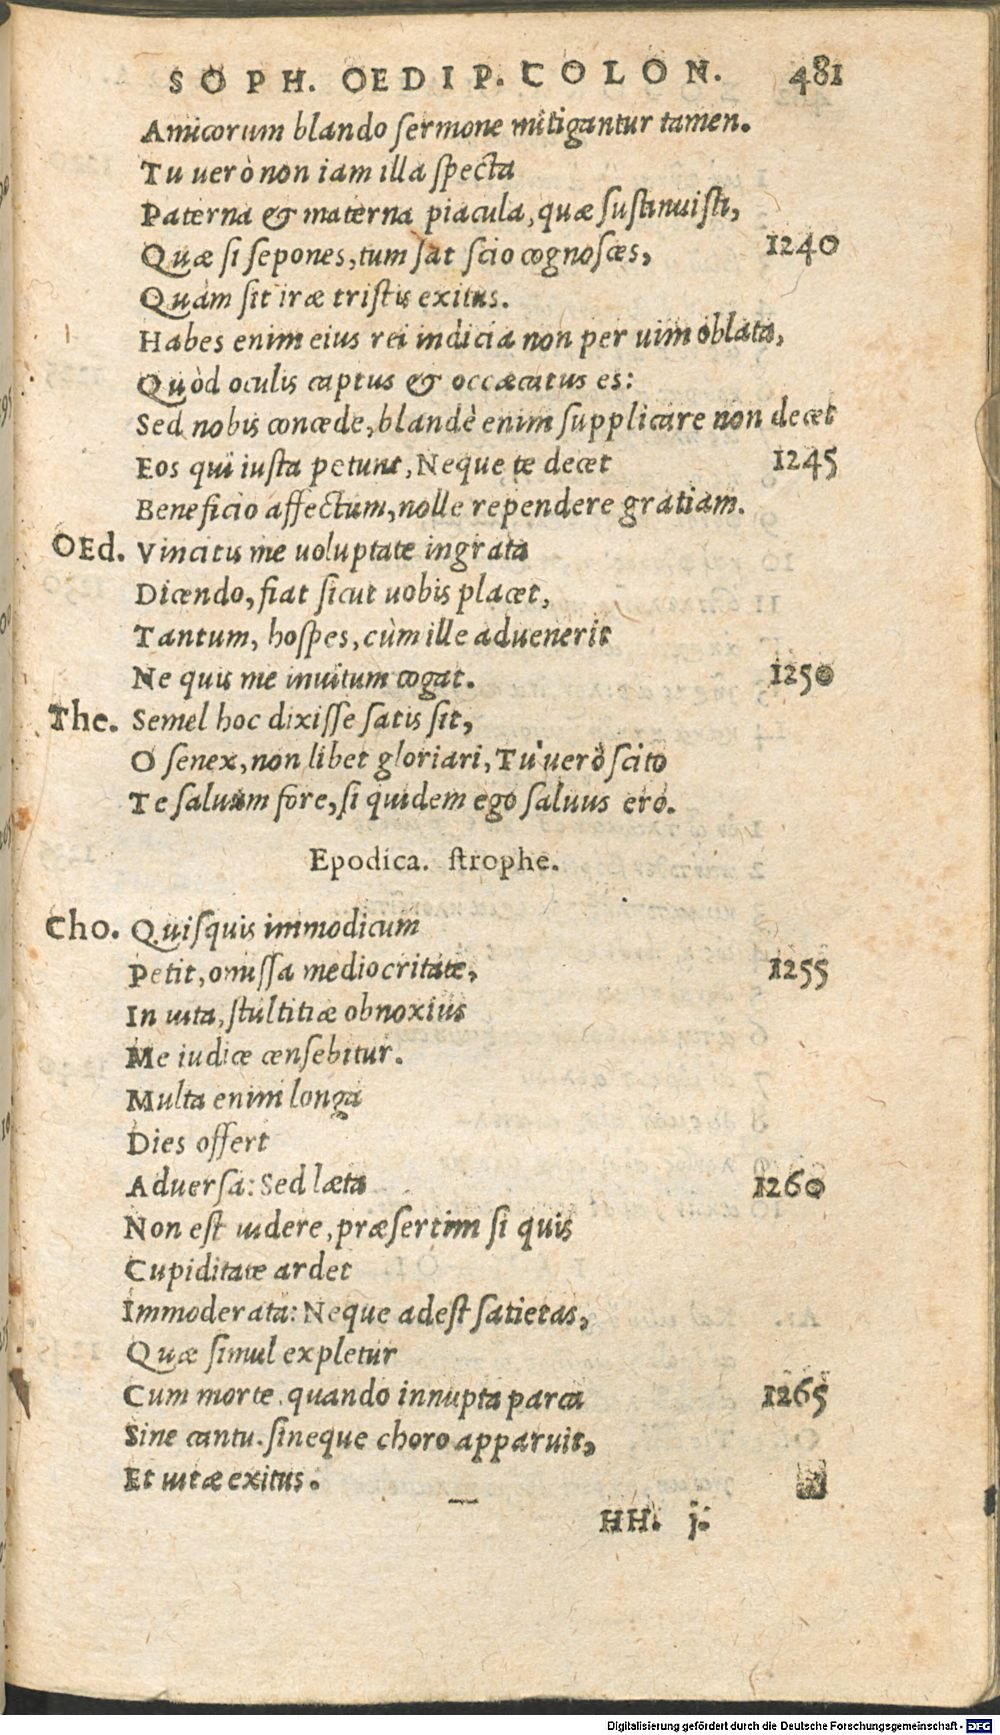 SOPH. OEDIP. COLON. 481
Amicorum blando sermone mitigantur tamen.
Tu uerò non iam illa specta
Paterna & materna piacula, quæ sustinuisti,
Quæ si sepones, tum sat scio cognosces, 1240
Quàm sit iræ tristis exitus.
Habes enim eius rei indicia non per uim oblata,
Quòd oculis captus & occæcatus es:
Sed nobis concede, blandè enim supplicare non decet
Eos qui iusta petunt, Neque te decet 1245
Beneficio affectum, nolle rependere gratiam.
OEd. Vincitis me uoluptate ingrata
Dicendo, fiat sicut uobis placet,
Tantum, hospes, cùm ille aduenerit
Ne quis me inuitum cogat. 1250
The. Semel hoc dixisse satis sit,
O senex, non libet gloriari, Tu uerò scito
Te saluum fore, si quidem ego saluus ero.
Epodica. strophe.
Cho. Quisquis immodicum
Petit, omissa mediocritate, 1255
In uita, stultitiæ obnoxius
Me iudice censebitur.
Multa enim longa
Dies offert
Aduersa: Sed læta 1260
Non est uidere, præsertim si quis
Cupiditate ardet
Immoderata: Neque adest satietas,
Quæ simul expletur
Cum morte, quando innupta parca 1265
Sine cantu, sineque choro apparuit,
Et uitæ exitus.
HH. j.
Digitalisierung gefördert durch die Deutsche Forschungsgemeinschaft - DFG